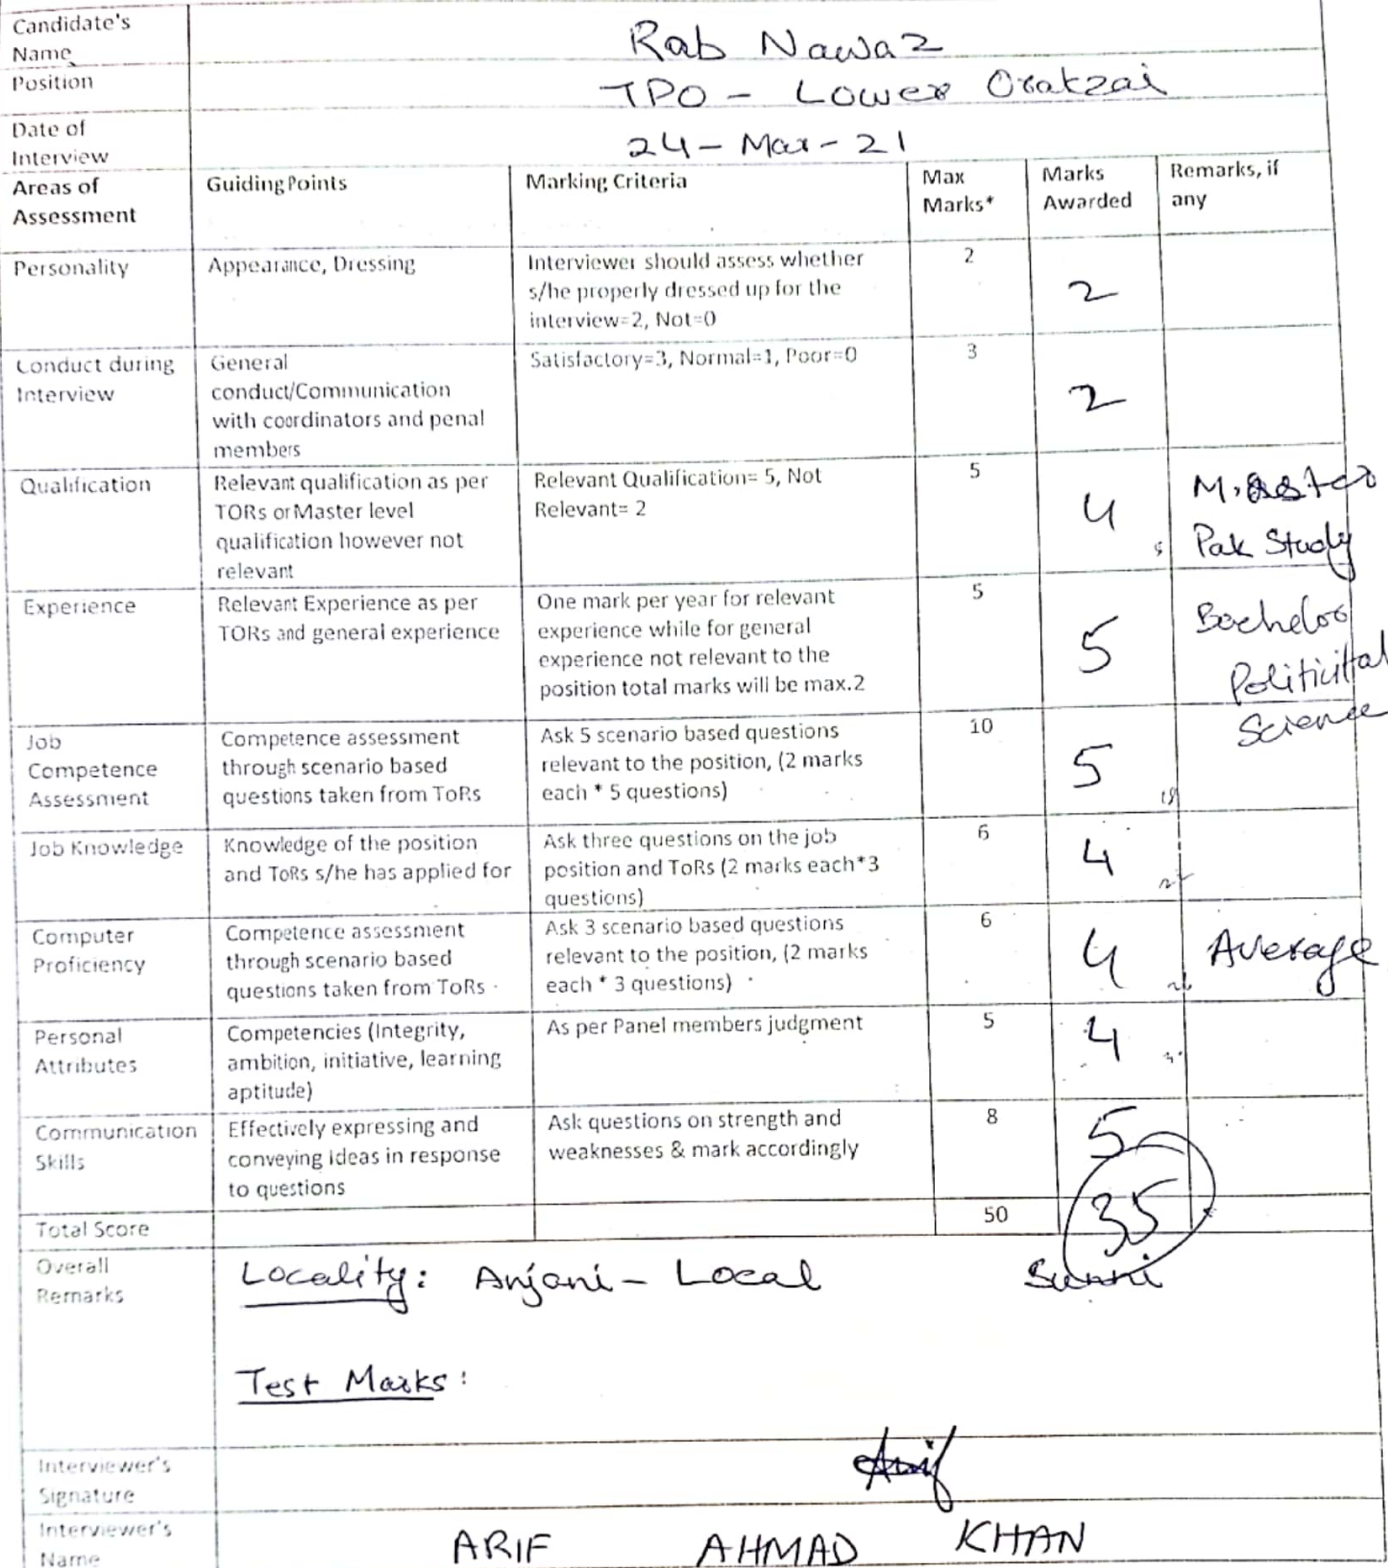 Candidate's
Name
Rab Nawaz
Position
TPO - Lower Orakzai
Date of
Interview
24 - Mar - 21
Areas of
Assessment
Guiding Points
Marking Criteria
Max
Marks*
Marks
Awarded
Remarks, if
any
Personality
Appearance, Dressing
Interviewer should assess whether
s/he properly dressed up for the
interview=2, Not=0
2
2
Conduct during
Interview
General
conduct/Communication
with coordinators and penal
members
Satisfactory=3, Normal=1, Poor=0
3
2
Qualification
Relevant qualification as per
TORs or Master level
qualification however not
relevant
Relevant Qualification= 5, Not
Relevant= 2
5
4
Master
Pak Study
Experience
Relevant Experience as per
TORs and general experience
One mark per year for relevant
experience while for general
experience not relevant to the
position total marks will be max.2
5
5
Bachelor
Science
Job
Competence
Assessment
Competence assessment
through scenario based
questions taken from ToRs
Ask 5 scenario based questions
relevant to the position, (2 marks
each * 5 questions)
10
5
Job Knowledge
Knowledge of the position
and ToRs s/he has applied for
Ask three questions on the job
position and ToRs (2 marks each*3
questions)
6
4
Computer
Proficiency
Competence assessment
through scenario based
questions taken from ToRs
Ask 3 scenario based questions
relevant to the position, (2 marks
each * 3 questions)
6
4
Average
Personal
Attributes
Competencies (Integrity,
ambition, initiative, learning
aptitude)
As per Panel members judgment
5
4
Communication
Skills
Effectively expressing and
conveying ideas in response
to questions
Ask questions on strength and
weaknesses & mark accordingly
8
5
Total Score
50
35
Overall
Remarks
Locality: Anjani - Local
Sunni
Test Marks:
Interviewer's
Signature
Arif
Interviewer's
Name
ARIF AHMAD KHAN